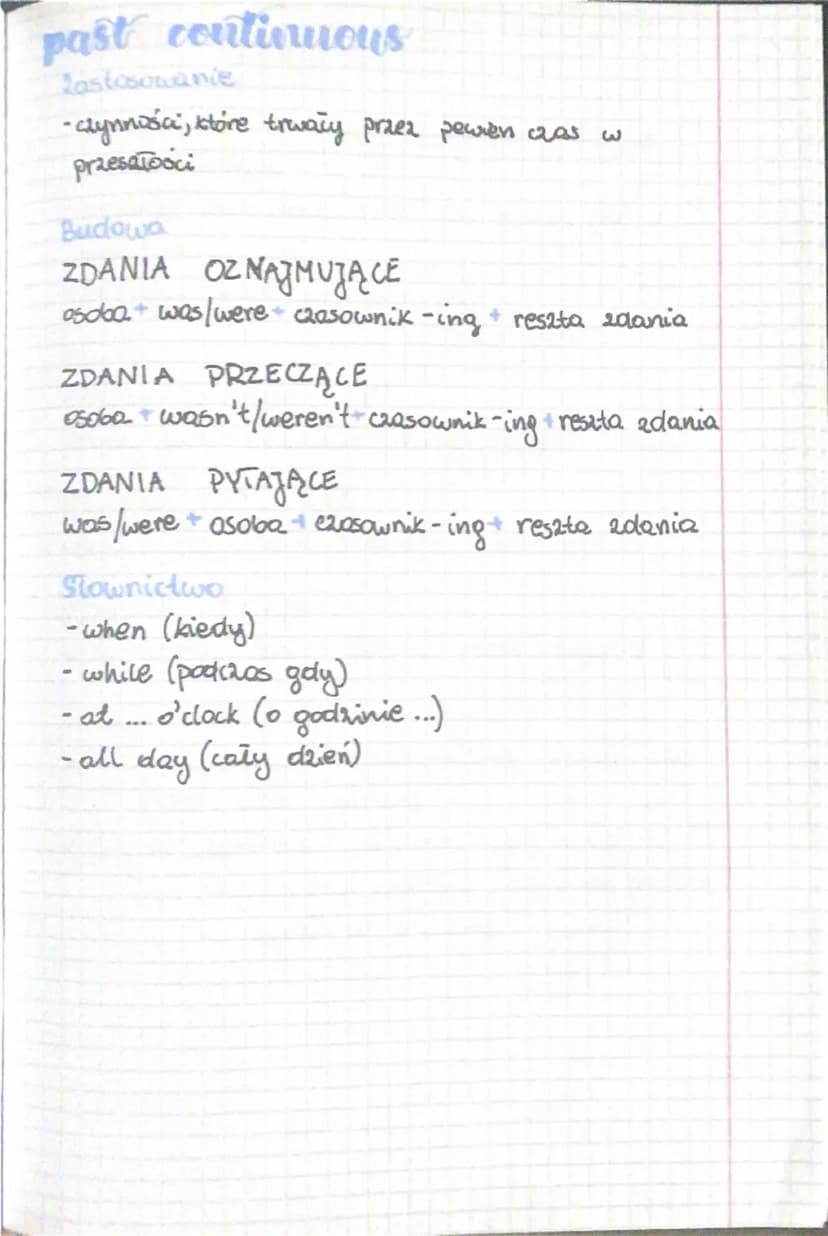 past continuous
Zastosowanie
- czynności, które trwały przez pewien czas w
przeszłości
Budowa
ZDANIA OZNAJMUJĄCE
osoba + was/were + czasownik -ing + reszta zdania
ZDANIA PRZECZĄCE
osoba + wasn't/weren't + czasownik -ing + reszta zdania
ZDANIA PYTAJĄCE
was/were + osoba + czasownik - ing + reszta zdania
Słownictwo
- when (kiedy)
- while (podczas gdy)
- at ... o'clock (o godzinie ...)
- all day (cały dzień)